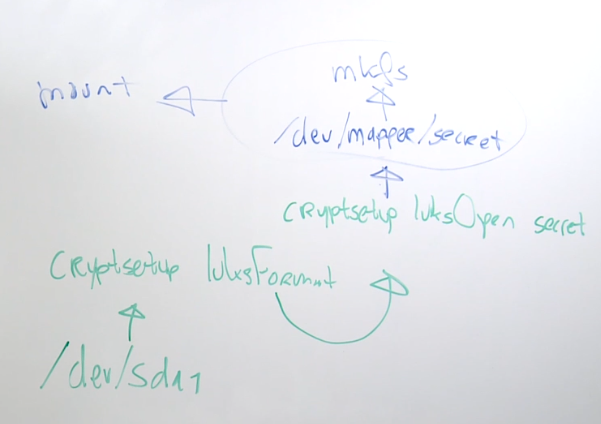 mkfs
mount
/dev/mapper/secret
cryptsetup luksOpen secret
cryptsetup luksFormat
/dev/sda1